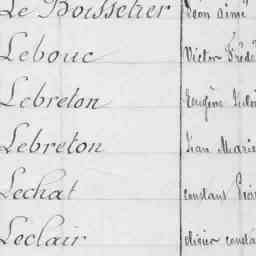 Le Boisselier Léon aimé
Lebouc Victor Fréd
Lebreton Eugène
Lebreton Jean Marie
Lechat constant
Leclair olivier consta